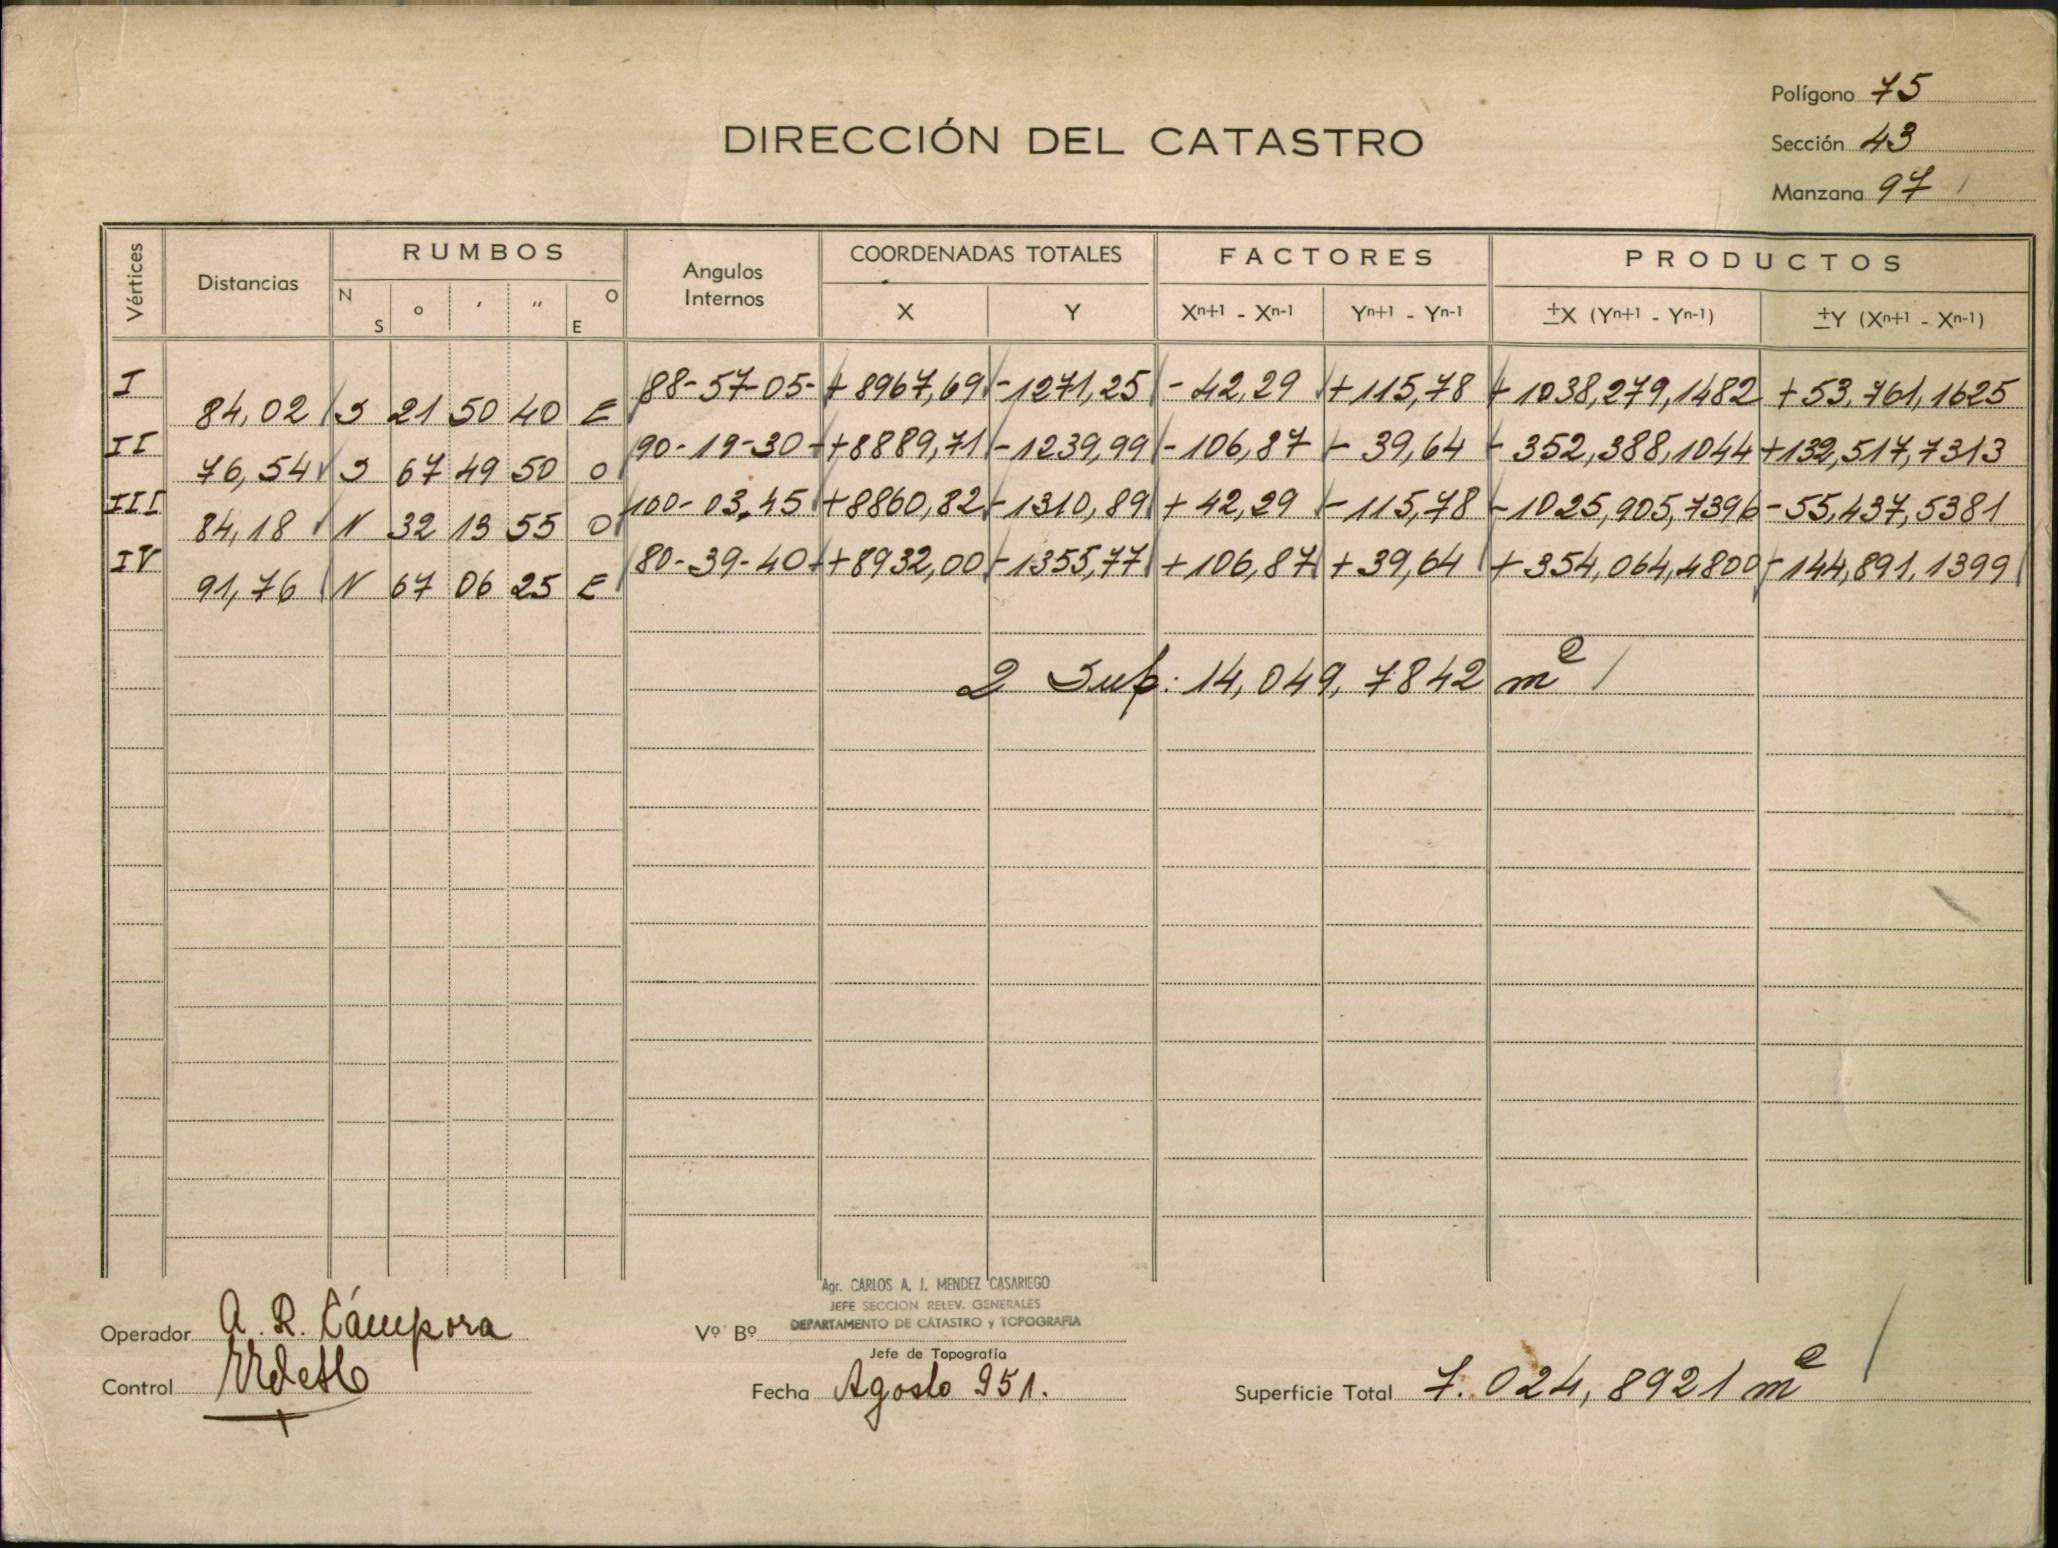 Polígono 75
DIRECCIÓN DEL CATASTRO
Sección 43
Manzana 97
Vértices Distancias RUMBOS Angulos Internos COORDENADAS TOTALES FACTORES PRODUCTOS
N S o ' " O E X Y Xn+1 - Xn-1 Yn+1 - Yn-1 ±X (Yn+1 - Yn-1) ±Y (Xn+1 - Xn-1)
I 88-57-05- +8967,69 -1271,25 - 42,29 +115,78 +1038,279,1482 +53,761,1625
84,02 S 21 50 40 E
II 90-19-30- +8889,71 -1239,99 -106,87 - 39,64 - 352,388,1044 +132,517,7313
76,54 S 67 49 50 O
III 100-03,45 +8860,82 -1310,89 + 42,29 -115,78 -1025,905,7396 -55,437,5381
84,18 N 32 13 55 O
IV 80-39-40 +8932,00 -1355,77 +106,87 +39,64 +354,064,4800 -144,891,1399
91,76 N 67 06 25 E
2 Sup: 14,049,7842 m2
Agr. CARLOS A. J. MENDEZ CASARIEGO
JEFE SECCION RELEV. GENERALES
DEPARTAMENTO DE CATASTRO y TOPOGRAFIA
Operador A. R. Cámpora Vº Bº
Jefe de Topografía
Control Fecha Agosto 951. Superficie Total 7.024,8921 m2